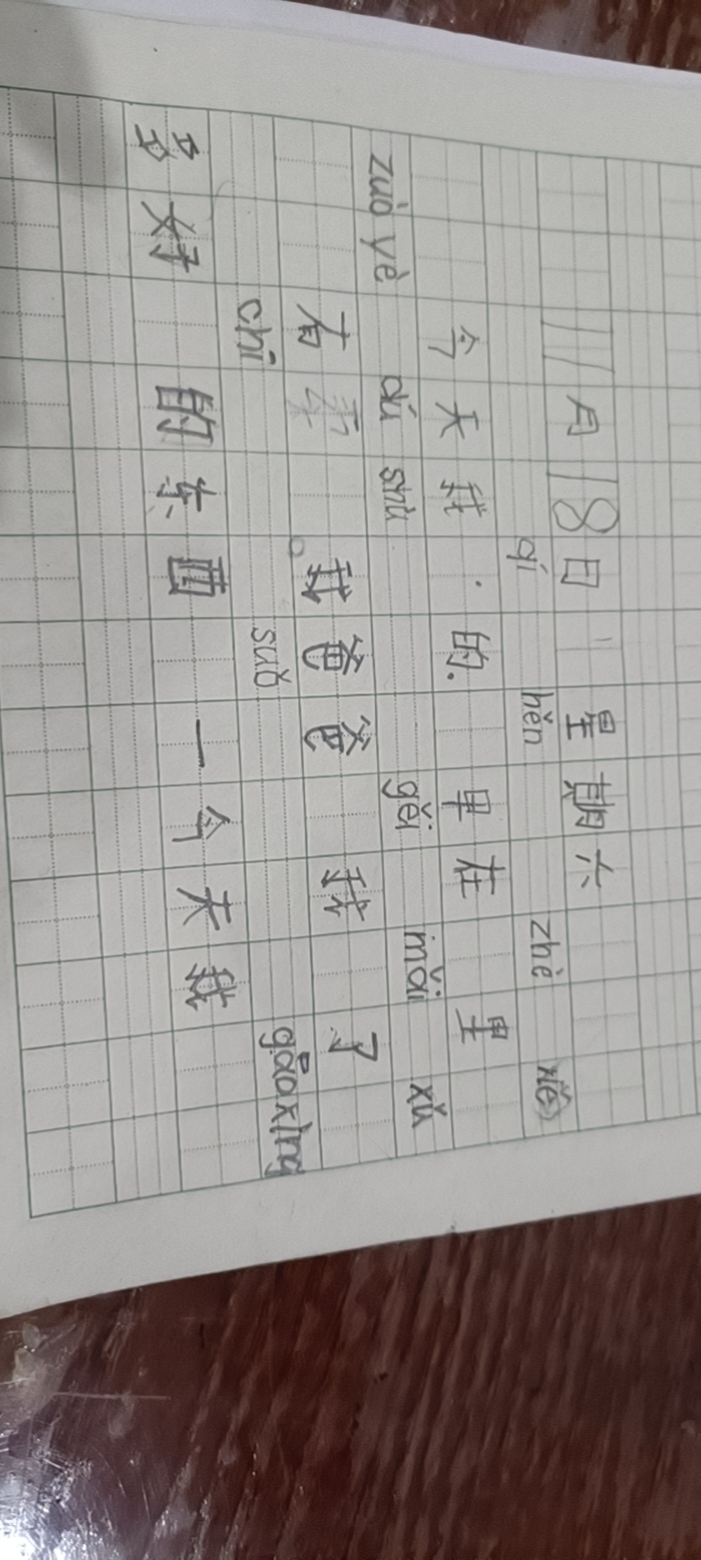 11月18日 星期六
qí hěn zhè xiě
今天我 的. 早在 里
zuò yè dú shū gěi mǎi xǔ
有 。我爸爸 我 了
chī suǒ gāoxìng
多好 的东西 一今天我